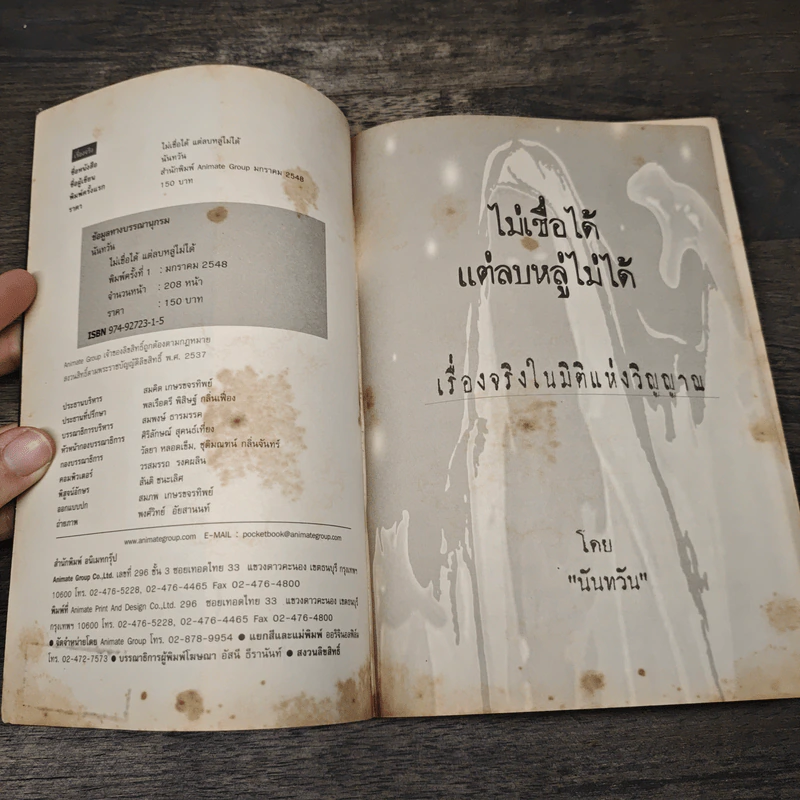 ชื่อหนังสือ ไม่เชื่อได้ แต่ลบหลู่ไม่ได้
ชื่อผู้เขียน นันทวัน
พิมพ์ครั้งแรก สำนักพิมพ์ Animate Group มกราคม 2548
ราคา 150 บาท
ข้อมูลทางบรรณานุกรม
นันทวัน
ไม่เชื่อได้ แต่ลบหลู่ไม่ได้
พิมพ์ครั้งที่ 1 : มกราคม 2548
จำนวนหน้า : 208 หน้า
ราคา : 150 บาท
ISBN 974-92723-1-5
Animate Group เจ้าของลิขสิทธิ์ถูกต้องตามกฎหมาย
สงวนลิขสิทธิ์ตามพระราชบัญญัติลิขสิทธิ์ พ.ศ. 2537
ประธานบริหาร สมคิด เกษรขจรทิพย์
ประธานที่ปรึกษา พลเรือตรี พิสิษฐ์ กลิ่นเฟื่อง
บรรณาธิการบริหาร สมพงษ์ ธารมรรค
หัวหน้ากองบรรณาธิการ ศิริลักษณ์ สุคนธ์เที่ยง
กองบรรณาธิการ วัลยา หลอดเข็ม, ชุติมณฑน์ กลิ่นจันทร์
คอมพิวเตอร์ วรสมรรถ รงคผลิน
พิสูจน์อักษร สันติ ชนะเลิศ
ออกแบบปก สมภพ เกษรขจรทิพย์
ถ่ายภาพ พงศ์วิทย์ อัยสานนท์
www.animategroup.com E-MAIL : pocketbook@animategroup.com
สำนักพิมพ์ อนิเมทกรุ๊ป
Animate Group Co.,Ltd. เลขที่ 296 ชั้น 3 ซอยเทอดไทย 33 แขวงดาวคะนอง เขตธนบุรี กรุงเทพฯ
10600 โทร. 02-476-5228, 02-476-4465 Fax 02-476-4800
พิมพ์ที่ Animate Print And Design Co.,Ltd. 296 ซอยเทอดไทย 33 แขวงดาวคะนอง เขตธนบุรี
กรุงเทพฯ 10600 โทร. 02-476-5228, 02-476-4465 Fax 02-476-4800
● จัดจำหน่ายโดย Animate Group โทร. 02-878-9954 ● แยกสีและแม่พิมพ์ ออริจินอลฟิล์ม
โทร. 02-472-7573 ● บรรณาธิการผู้พิมพ์โฆษณา อัสนี ธีรานันท์ ● สงวนลิขสิทธิ์
ไม่เชื่อได้
แต่ลบหลู่ไม่ได้
เรื่องจริงในมิติแห่งวิญญาณ
โดย
"นันทวัน"